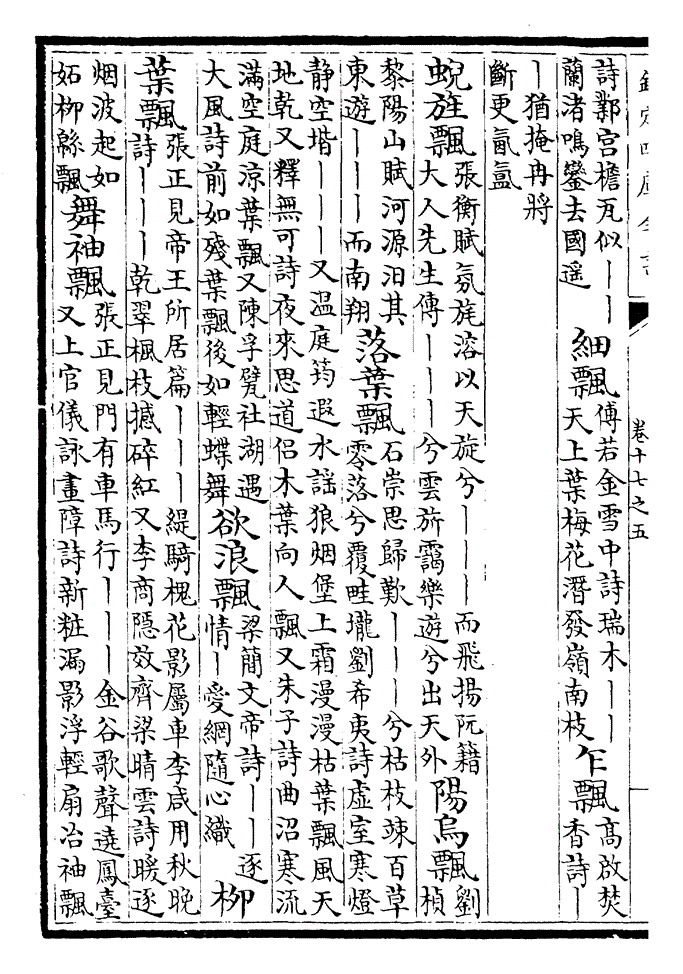 欽定四庫全書
卷十七之五
詩鄴宫檐瓦似丨丨
蘭渚鳴鑾去國遥
細飄
傅若金雪中詩瑞木丨丨
天上葉梅花潛發嶺南枝
乍飄
高啟焚
香詩丨
丨猶掩冉將
斷更氤氲
蜺旌飄
張衡賦氛旄溶以天旋兮丨丨丨而飛揚阮籍
大人先生傳丨丨丨兮雲旂靄樂遊兮出天外
陽烏飄
劉
楨
黎陽山賦河源汨其
東遊丨丨丨而南翔
落葉飄
石崇思歸歎丨丨丨兮枯枝竦百草
零落兮覆畦壠劉希夷詩虚室寒燈
静空堦丨丨丨又温庭筠遐水謡狼烟堡上霜漫漫枯葉飄風天
地乾又釋無可詩夜來思道侣木葉向人飄又朱子詩曲沼寒流
滿空庭涼葉飄又陳孚甓社湖遇
大風詩前如殘葉飄後如輕蝶舞
欲浪飄
梁簡文帝詩丨丨逐
情丨愛網隨心織
柳
葉飄
張正見帝王所居篇丨丨丨緹騎槐花影屬車李咸用秋晚
詩丨丨丨乾翠楓枝撼碎紅又李商隱效齊梁晴雲詩暖逐
烟波起如
妬柳緜飄
舞袖飄
張正見門有車馬行丨丨丨金谷歌聲遶鳳臺
又上官儀詠畫障詩新粧漏影浮輕扇冶袖飄